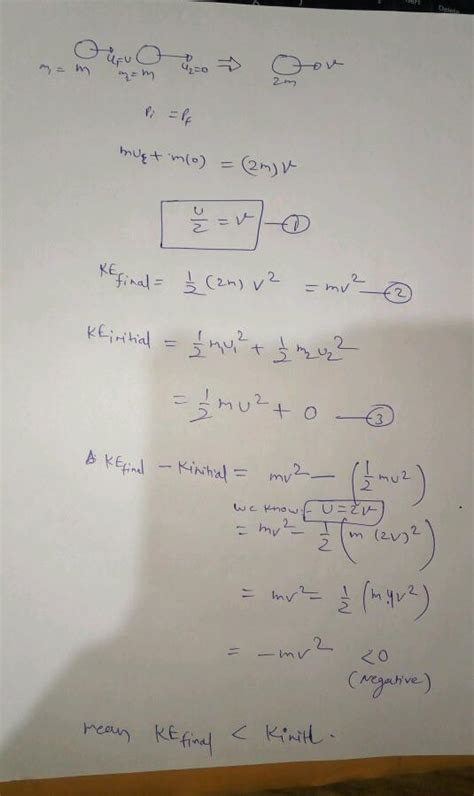 u₁=u u₂=0 ⇒ v
m₁= m m₂= m 2m
Pi = Pf
mu + m(0) = (2m) v
u/2 = v — ①
KE final = 1/2 (2m) v² = mv² — ②
KE initial = 1/2 m₁u₁² + 1/2 m₂u₂²
= 1/2 mu² + 0 — ③
KE final - Kinitial = mv² — (1/2 mu²)
we know:- u=2v
= mv² - 1/2 (m (2v)²)
= mv² - 1/2 (m4v²)
= -mv² <0
(Negative)
mean KE final < Kinitl.